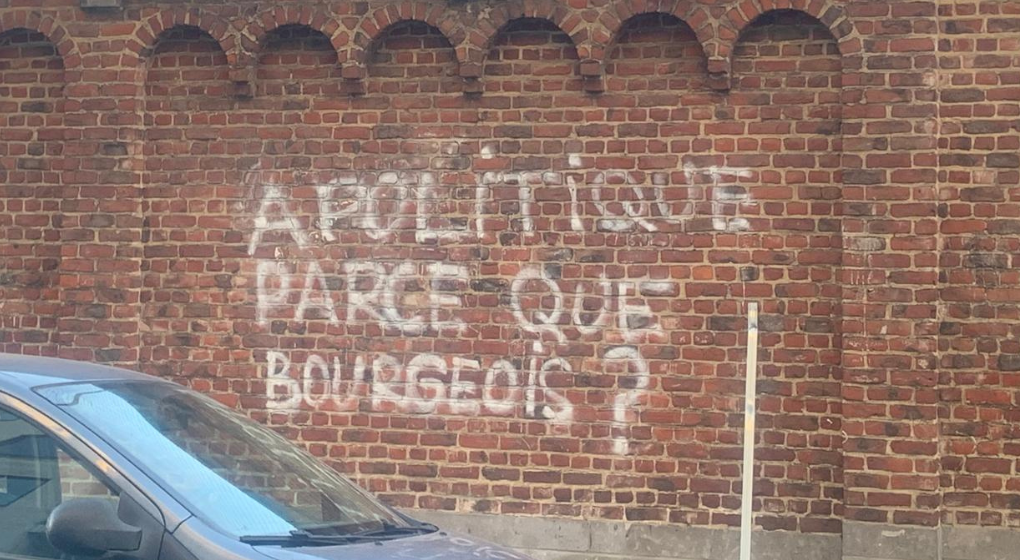 APOLiTiQUE
PARCE QUE
BOURGEOiS ?